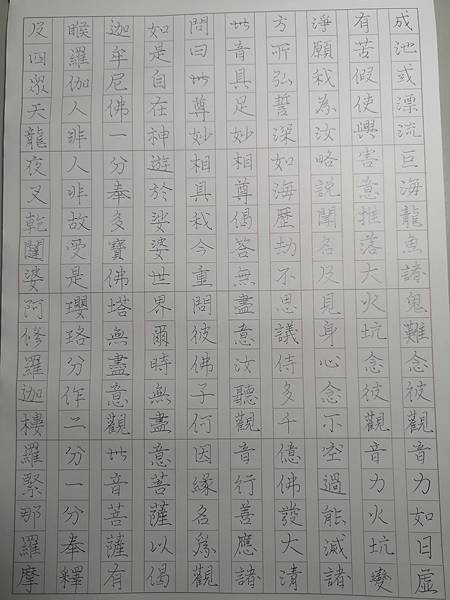 及四眾天龍夜叉乾闥婆阿修羅迦樓羅緊那羅摩
睺羅伽人非人非故受是瓔珞分作二分一分奉釋
迦牟尼佛一分奉多寶佛塔無盡意觀世音菩薩有
如是自在神遊於娑婆世界爾時無盡意菩薩以偈
問曰世尊妙相具我今重問彼佛子何因緣名為觀
世音具足妙相尊偈答無盡意汝聽觀音行善應諸
方所弘誓深如海歷劫不思議侍多千億佛發大清
淨願我為汝略說聞名及見身心念不空過能滅諸
有苦假使興害意推落大火坑念彼觀音力火坑變
成池或漂流巨海龍魚諸鬼難念彼觀音力如日虛